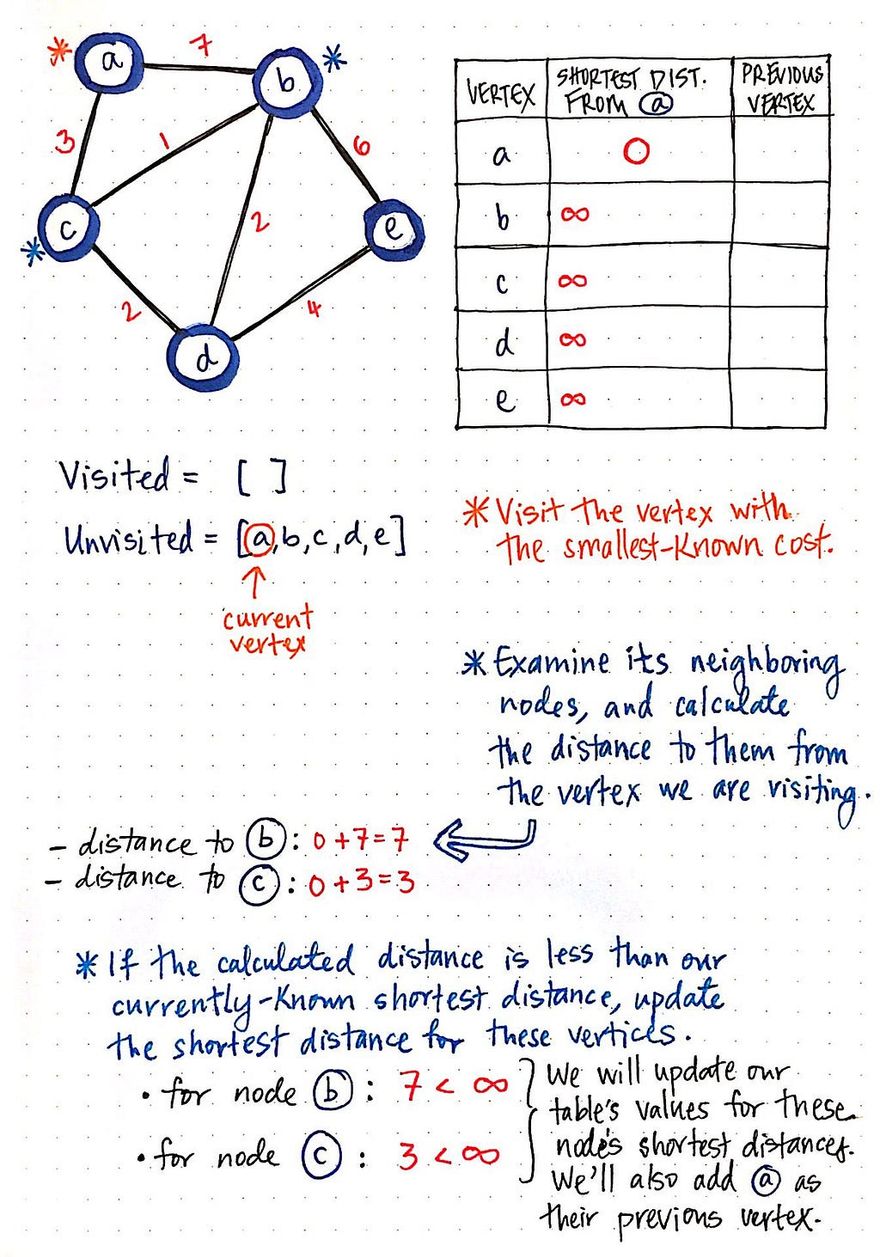 a
7
b
3
1
6
c
2
e
2
4
d
VERTEX SHORTEST DIST. FROM a PREVIOUS VERTEX
a 0
b ∞
c ∞
d ∞
e ∞
Visited = [ ]
Unvisited = [a,b,c,d,e]
current
vertex
* Visit the vertex with
the smallest-known cost.
* Examine its neighboring
nodes, and calculate
the distance to them from
the vertex we are visiting.
- distance to b: 0+7=7
- distance to c: 0+3=3
* If the calculated distance is less than our
currently-known shortest distance, update
the shortest distance for these vertices.
• for node b: 7 < ∞
• for node c: 3 < ∞
We will update our
table's values for these
node's shortest distances.
We'll also add a as
their previous vertex.